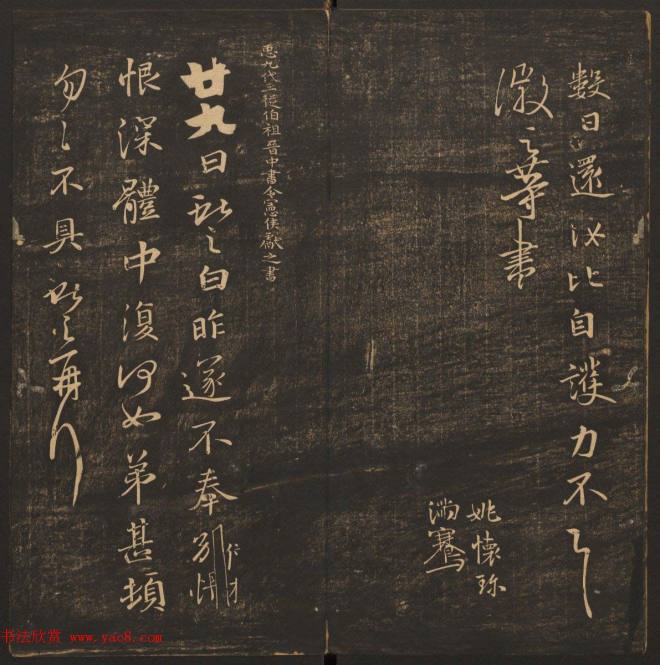 數日還汝比自護力不一一
徽之等書
姚懷珍
滿騫
𢘑九代三從伯祖晉中書令憲侯獻之書
廿九日獻之白昨遂不奉別悵
恨深體中復何如弟甚頓
匆匆不具獻之再拜
书法欣赏 www.yac8.com